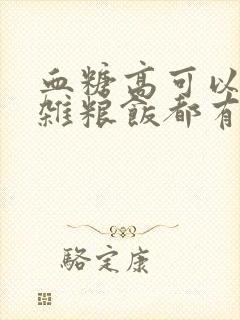 血糖高可以
雜粮飯都有
駱定康